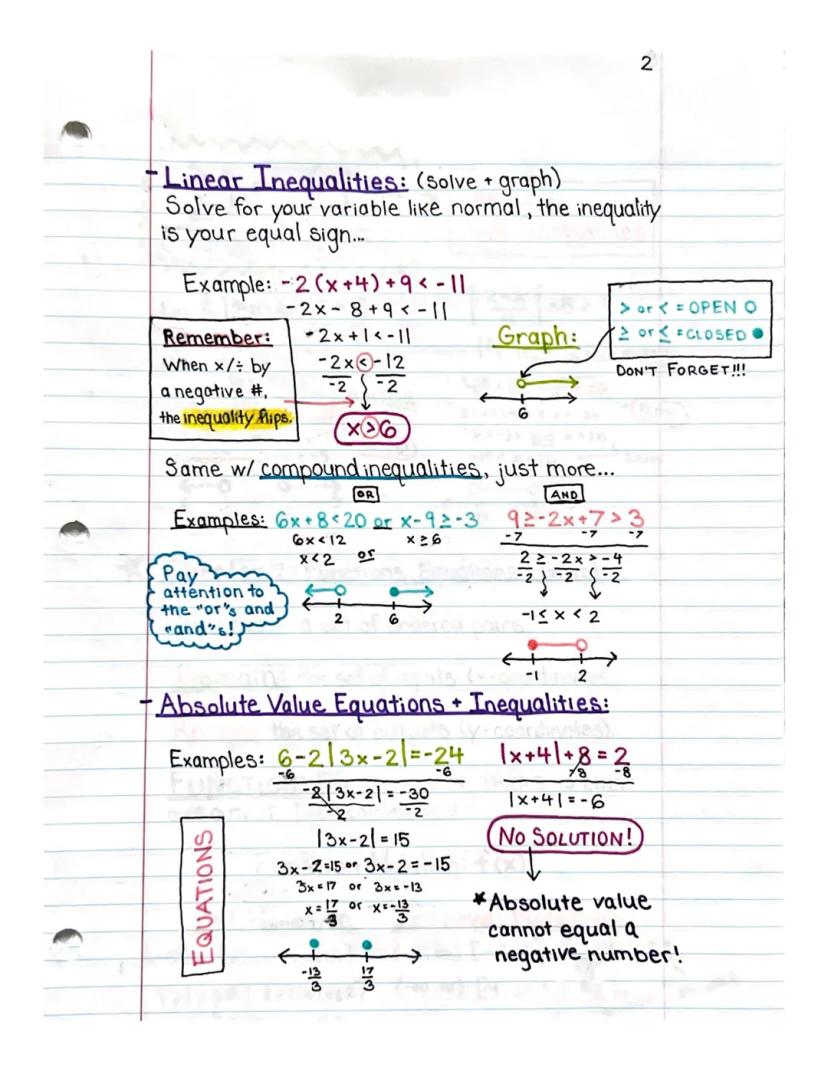 2
- Linear Inequalities: (solve + graph)
Solve for your variable like normal, the inequality
is your equal sign...
Example: -2(x+4)+9 < -11
-2x - 8 + 9 < -11
-2x + 1 < -11
-2x < -12
-2 -2
x > 6
Remember:
When x/÷ by
a negative #,
the inequality flips.
Graph:
6
> or < = OPEN O
≥ or ≤ = CLOSED ●
DON'T FORGET!!!
Same w/ compound inequalities, just more...
OR
AND
Examples: 6x + 8 < 20 or x - 9 ≥ -3
6x < 12 x ≥ 6
x < 2 or
2 6
9 ≥ -2x + 7 > 3
-7 -7 -7
2 ≥ -2x > -4
-2 -2 -2
-1 ≤ x < 2
-1 2
Pay
attention to
the "or"s and
"and"s!
- Absolute Value Equations + Inequalities:
Examples: 6-2|3x-2|=-24
-6 -6
-2|3x-2| = -30
-2 -2
|3x-2| = 15
3x-2=15 or 3x-2=-15
3x=17 or 3x=-13
x=17/3 or x=-13/3
-13/3 17/3
EQUATIONS
|x+4|+8=2
-8 -8
|x+4| = -6
NO SOLUTION!
*Absolute value
cannot equal a
negative number!